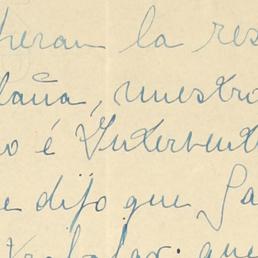 heran la res
laña, nuestro
o é Intervent
e dijo que Ga
trabajar. que